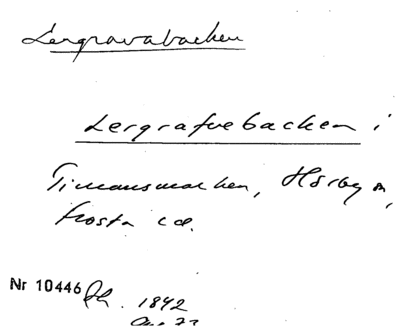 Lergravabacken
Lergrafvebacken i
Timansmarken, Hörby sn,
Frosta hd.
Nr 10446 1842